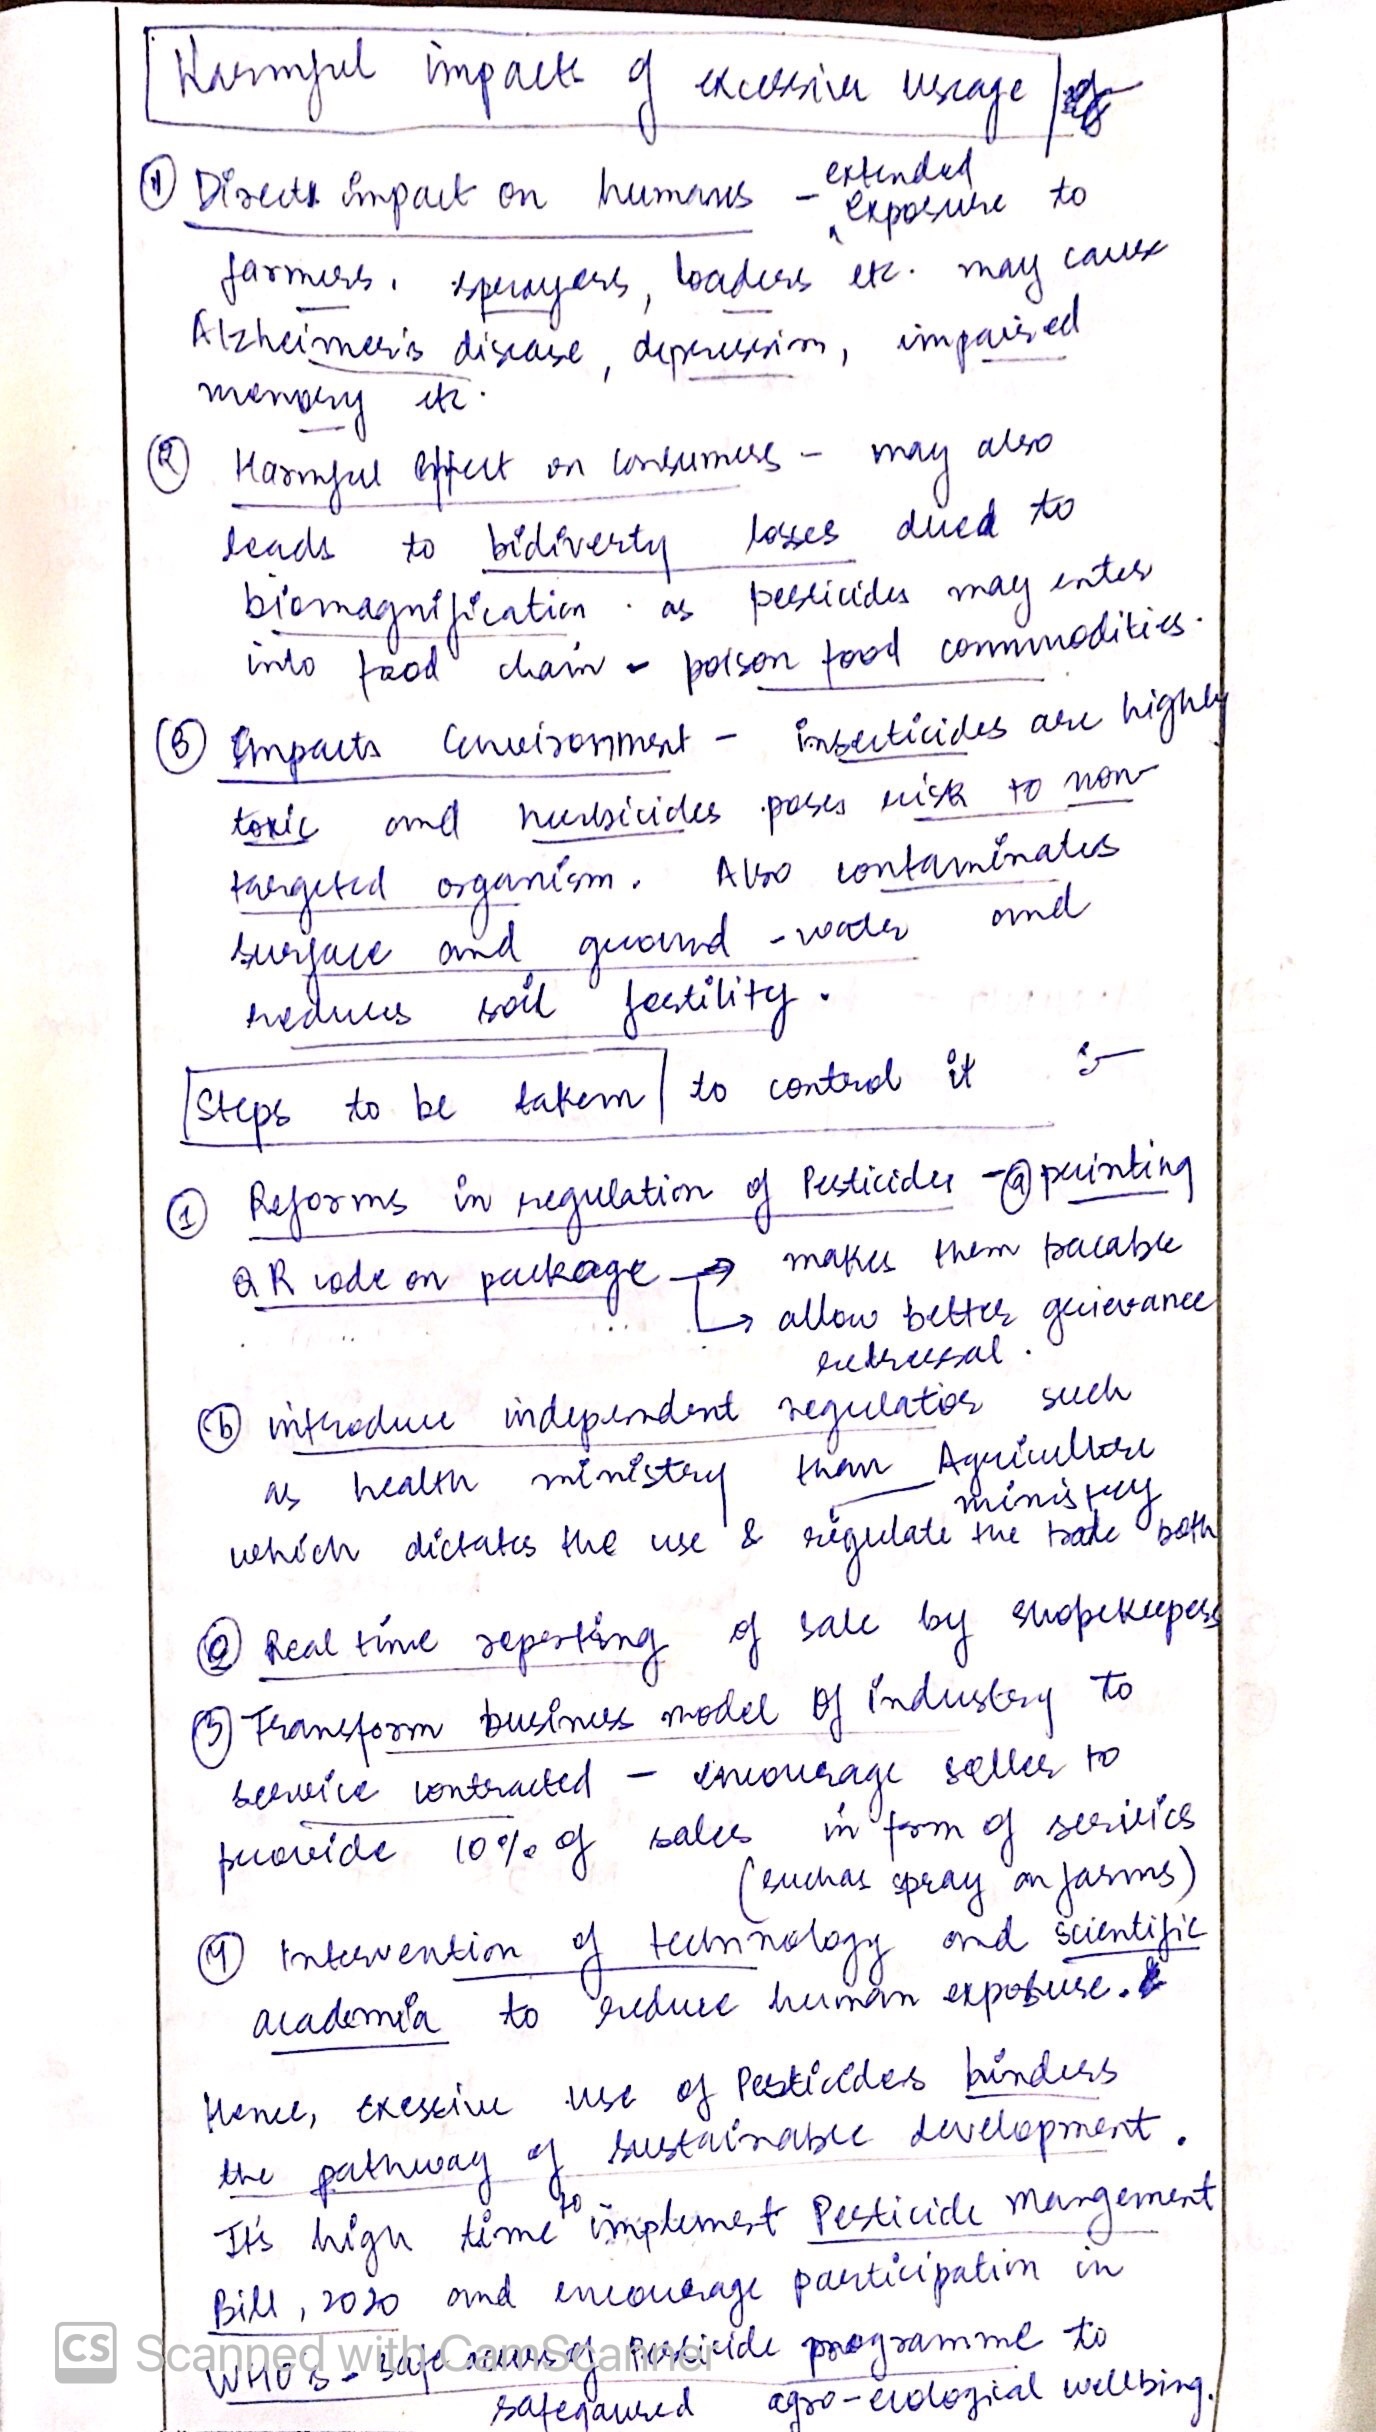 Harmful impacts of excessive useage
① Direct impact on humans - extended exposure to
farmers, sprayers, loaders etc. may cause
Alzheimer's disease, depression, impaired
memory etc.
② Harmful effect on consumers - may also
leads to bidiverty losses dued to
biomagnification . as pesticides may enter
into food chain - poison food commodities.
③ Impacts Environment - insecticides are highly
toxic and herbicides poses risk to non-
targeted organism. Also contaminates
surface and ground - water and
reduces soil fertility.
Steps to be taken to control it :-
① Reforms in regulation of Pesticides - ⓐ printing
QR code on package → makes them tracable
↳ allow better grievance
redressal.
ⓑ introduce independent regulator such
as health ministry than Agriculture
ministry
which dictates the use & regulate the trade both
② Real time reporting of sale by shopekeepers
③ Transform business model of industry to
service contracted - encourage seller to
provide 10% of sales in form of services
(such as spray on farms)
④ Intervention of technology and scientific
academia to reduce human exposure.
Hence, exessive use of Pesticides hinders
the pathway of sustainable development.
It's high time to implement Pesticide Mangement
Bill, 2020 and encourage participation in
WHO's - safe use of Pesticide programme to
safegaurd agro-ecological wellbing.
CS Scanned with CamScanner